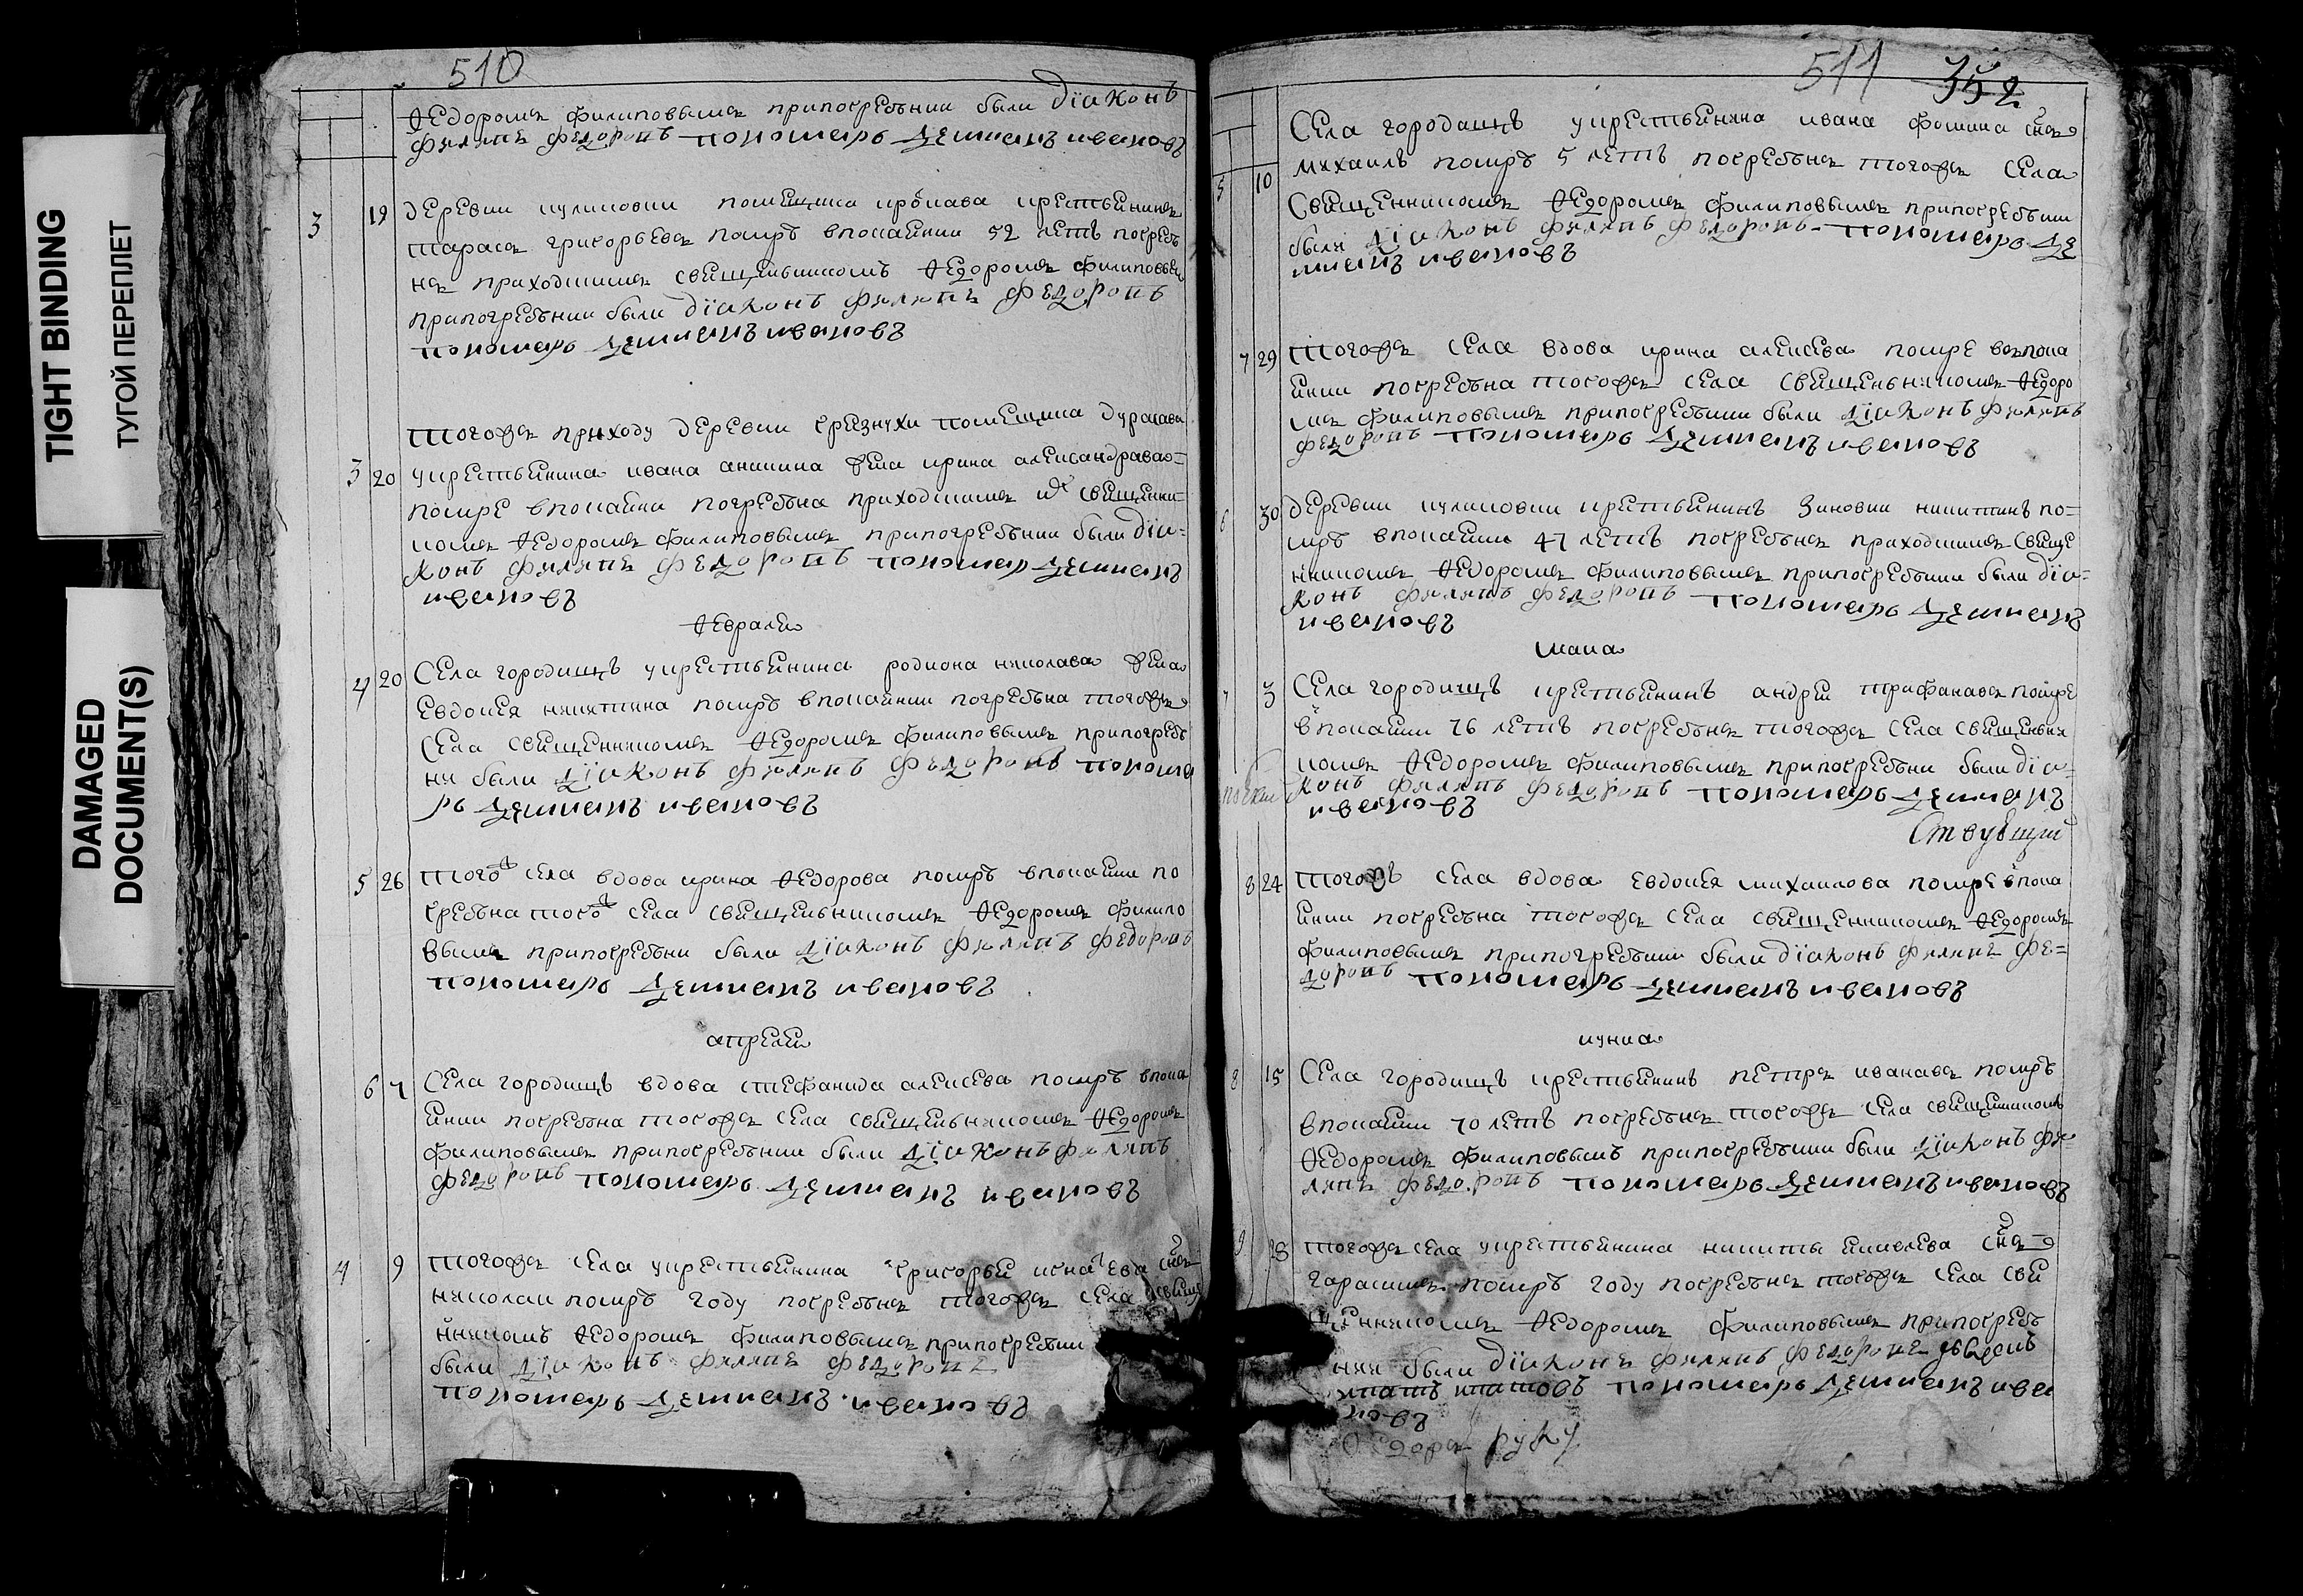 TIGHT BINDING
ТУГОЙ ПЕРЕПЛЕТ
DAMAGED
DOCUMENT(S)
510
Ѳедоромъ филиповымъ припогребѣнии были дїаконъ
филипъ федоровъ пономарь демианъ ивановъ
3 19 деревни куликовки помещика крестьянинъ
тарасъ григорьевъ помръ впокаянии 52 летъ погребѣ
нъ приходскимъ священьникомъ Ѳедоромъ филиповым
припогребѣнии были дїаконъ филипъ федоровъ
пономарь демианъ ивановъ
тогожъ приходу деревни грезнухи помещика дурасава
3 20 укрестьянина ивана аникина жена ирина александрава
помре впокаянии погребѣна приходскимъ священни-
комъ Ѳедоромъ филиповымъ припогребѣнии были дїа-
конъ филипъ федоровъ пономарь демианъ
ивановъ
Ѳевраля
4 20 Села городищъ укрестьянина родиона николава жена
Евдокея никитина помръ впокаянии погребѣна тогожъ
Села священникомъ Ѳедоромъ филиповымъ припогребѣ
ни были дїаконъ филипъ федоровъ понома
рь демианъ ивановъ
5 26 тогож села вдова ирина Ѳедорова помръ впокаянии по
гребѣна тогож села священьникомъ Ѳедоромъ филипо
вымъ припогребѣни были дїаконъ филипъ федоровъ
пономарь демианъ ивановъ
апреля
6 7 Села городищъ вдова стефанида алексева помръ впока
янии погребѣна тогожъ села священьникомъ Ѳедоромъ
филиповымъ припогребѣнии были дїаконъ филипъ
федоровъ пономарь демианъ ивановъ
4 9 тогожъ села укрестьянина григорья игнатева снъ
николаи помръ году погребѣнъ тогожъ села свяще
нникомъ Ѳедоромъ филиповымъ припогребѣнии
были дїаконъ филипъ федоровъ
пономарь демианъ ивановъ
511 352
Села городищъ укрестьянина ивана фомина снъ
5 10 михаилъ помръ 5 летъ погребѣнъ тогожъ села
Священникомъ Ѳедоромъ филиповымъ припогребѣнии
были дїаконъ филипъ федоровъ пономарь де
мианъ ивановъ
7 29 тогожъ села вдова ирина алексева помре вопока
янии погребѣна тогожъ села священьникомъ Ѳедоро
мъ филиповымъ припогребѣнии были дїаконъ филипъ
федоровъ пономарь демианъ ивановъ
6 30 деревни куликовки крестьянинъ зиновии никитинъ по-
мръ впокаянии 47 летъ погребѣнъ приходскимъ свяще
нникомъ Ѳедоромъ филиповымъ припогребѣнии были дїа-
конъ филипъ федоровъ пономарь демианъ
ивановъ
маиа
7 3 Села городищъ крестьянинъ андреи трифанавъ помре
впокаянии 76 летъ погребѣнъ тогожъ села священьни
комъ Ѳедоромъ филиповымъ припогребѣни были дїа-
конъ филипъ федоровъ пономарь демианъ
ивановъ
8 24 тогожъ села вдова Евдокея михаилова помре впока
янии погребѣна тогожъ села священникомъ Ѳедоромъ
филиповымъ припогребѣнии были дїаконъ филипъ фе-
доровъ пономарь демианъ ивановъ
иуниа
8 15 Села городищъ крестьянинъ петръ иванавъ помръ
впокаянии 70 летъ погребѣнъ тогожъ села священникомъ
Ѳедоромъ филиповымъ припогребѣнии были дїаконъ фи-
липъ федоровъ пономарь демианъ ивановъ
9 28 тогожъ села укрестьянина никиты снъ
гарасимъ помръ году погребѣнъ тогожъ села свя
щенникомъ Ѳедоромъ филиповымъ припогребѣ
нии были дїаконъ филипъ федоровъ
пономарь демианъ ива
новъ
Ѳедоръ руку